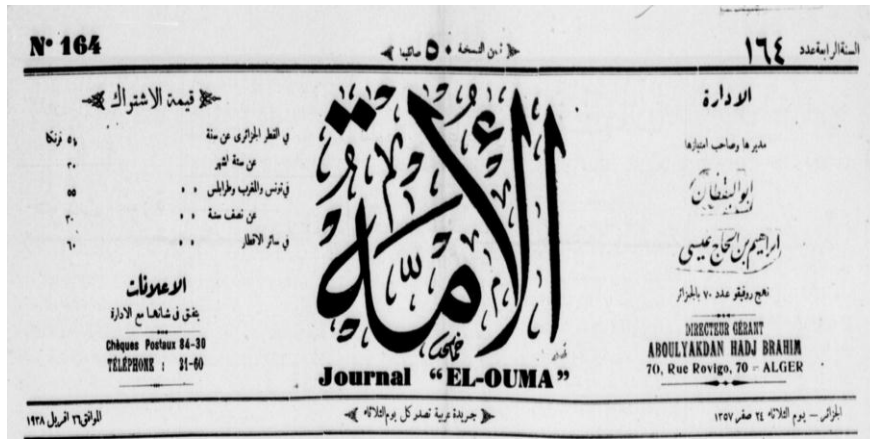 السنة الرابعة عدد ١٦٤
ثمن النسخة ٥٠ صانتيما
Nº 164
الادارة
مديرها وصاحب امتيازها
ابو اليقظان
ابراهيم بن الحاج عيسى
نهج روفيقو عدد ٧٠ بالجزائر
DIRECTEUR GÉRANT
ABOULYAKDAN HADJ BRAHIM
70, Rue Rovigo, 70 - ALGER
الأمة
Journal "EL-OUMA"
قيمة الاشتراك
في القطر الجزائري عن سنة فرنكا
عن ستة اشهر
في تونس والمغرب وطرابلس " " ٥٥
عن نصف سنة " " ٣٠
في سائر الاقطار " " ٦٠
الاعلانات
يتفق في شانها مع الادارة
Chèques Postaux 84-30
TÉLÉPHONE : 31-60
الجزائر — يوم الثلاثاء ٢٤ صفر ١٣٥٧
جريدة عربية تصدر كل يوم الثلاثاء
الموافق ٢٦ افريل ١٩٣٨